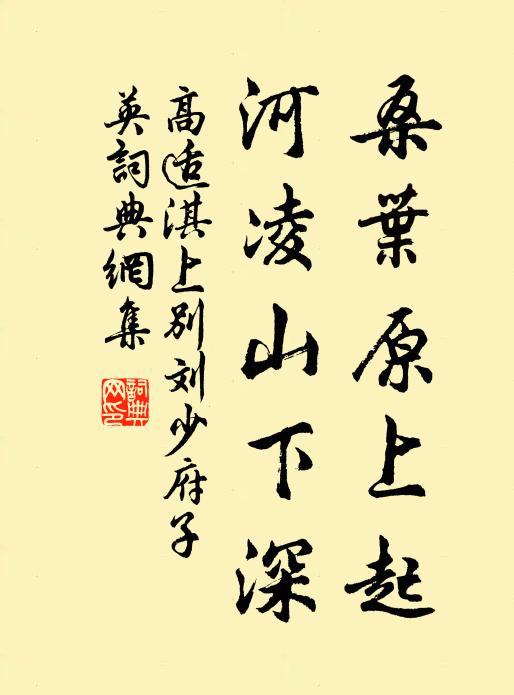 桑葉原上起
河凌山下深
高适淇上別刘少府子
英詞典網集
詞典
网印